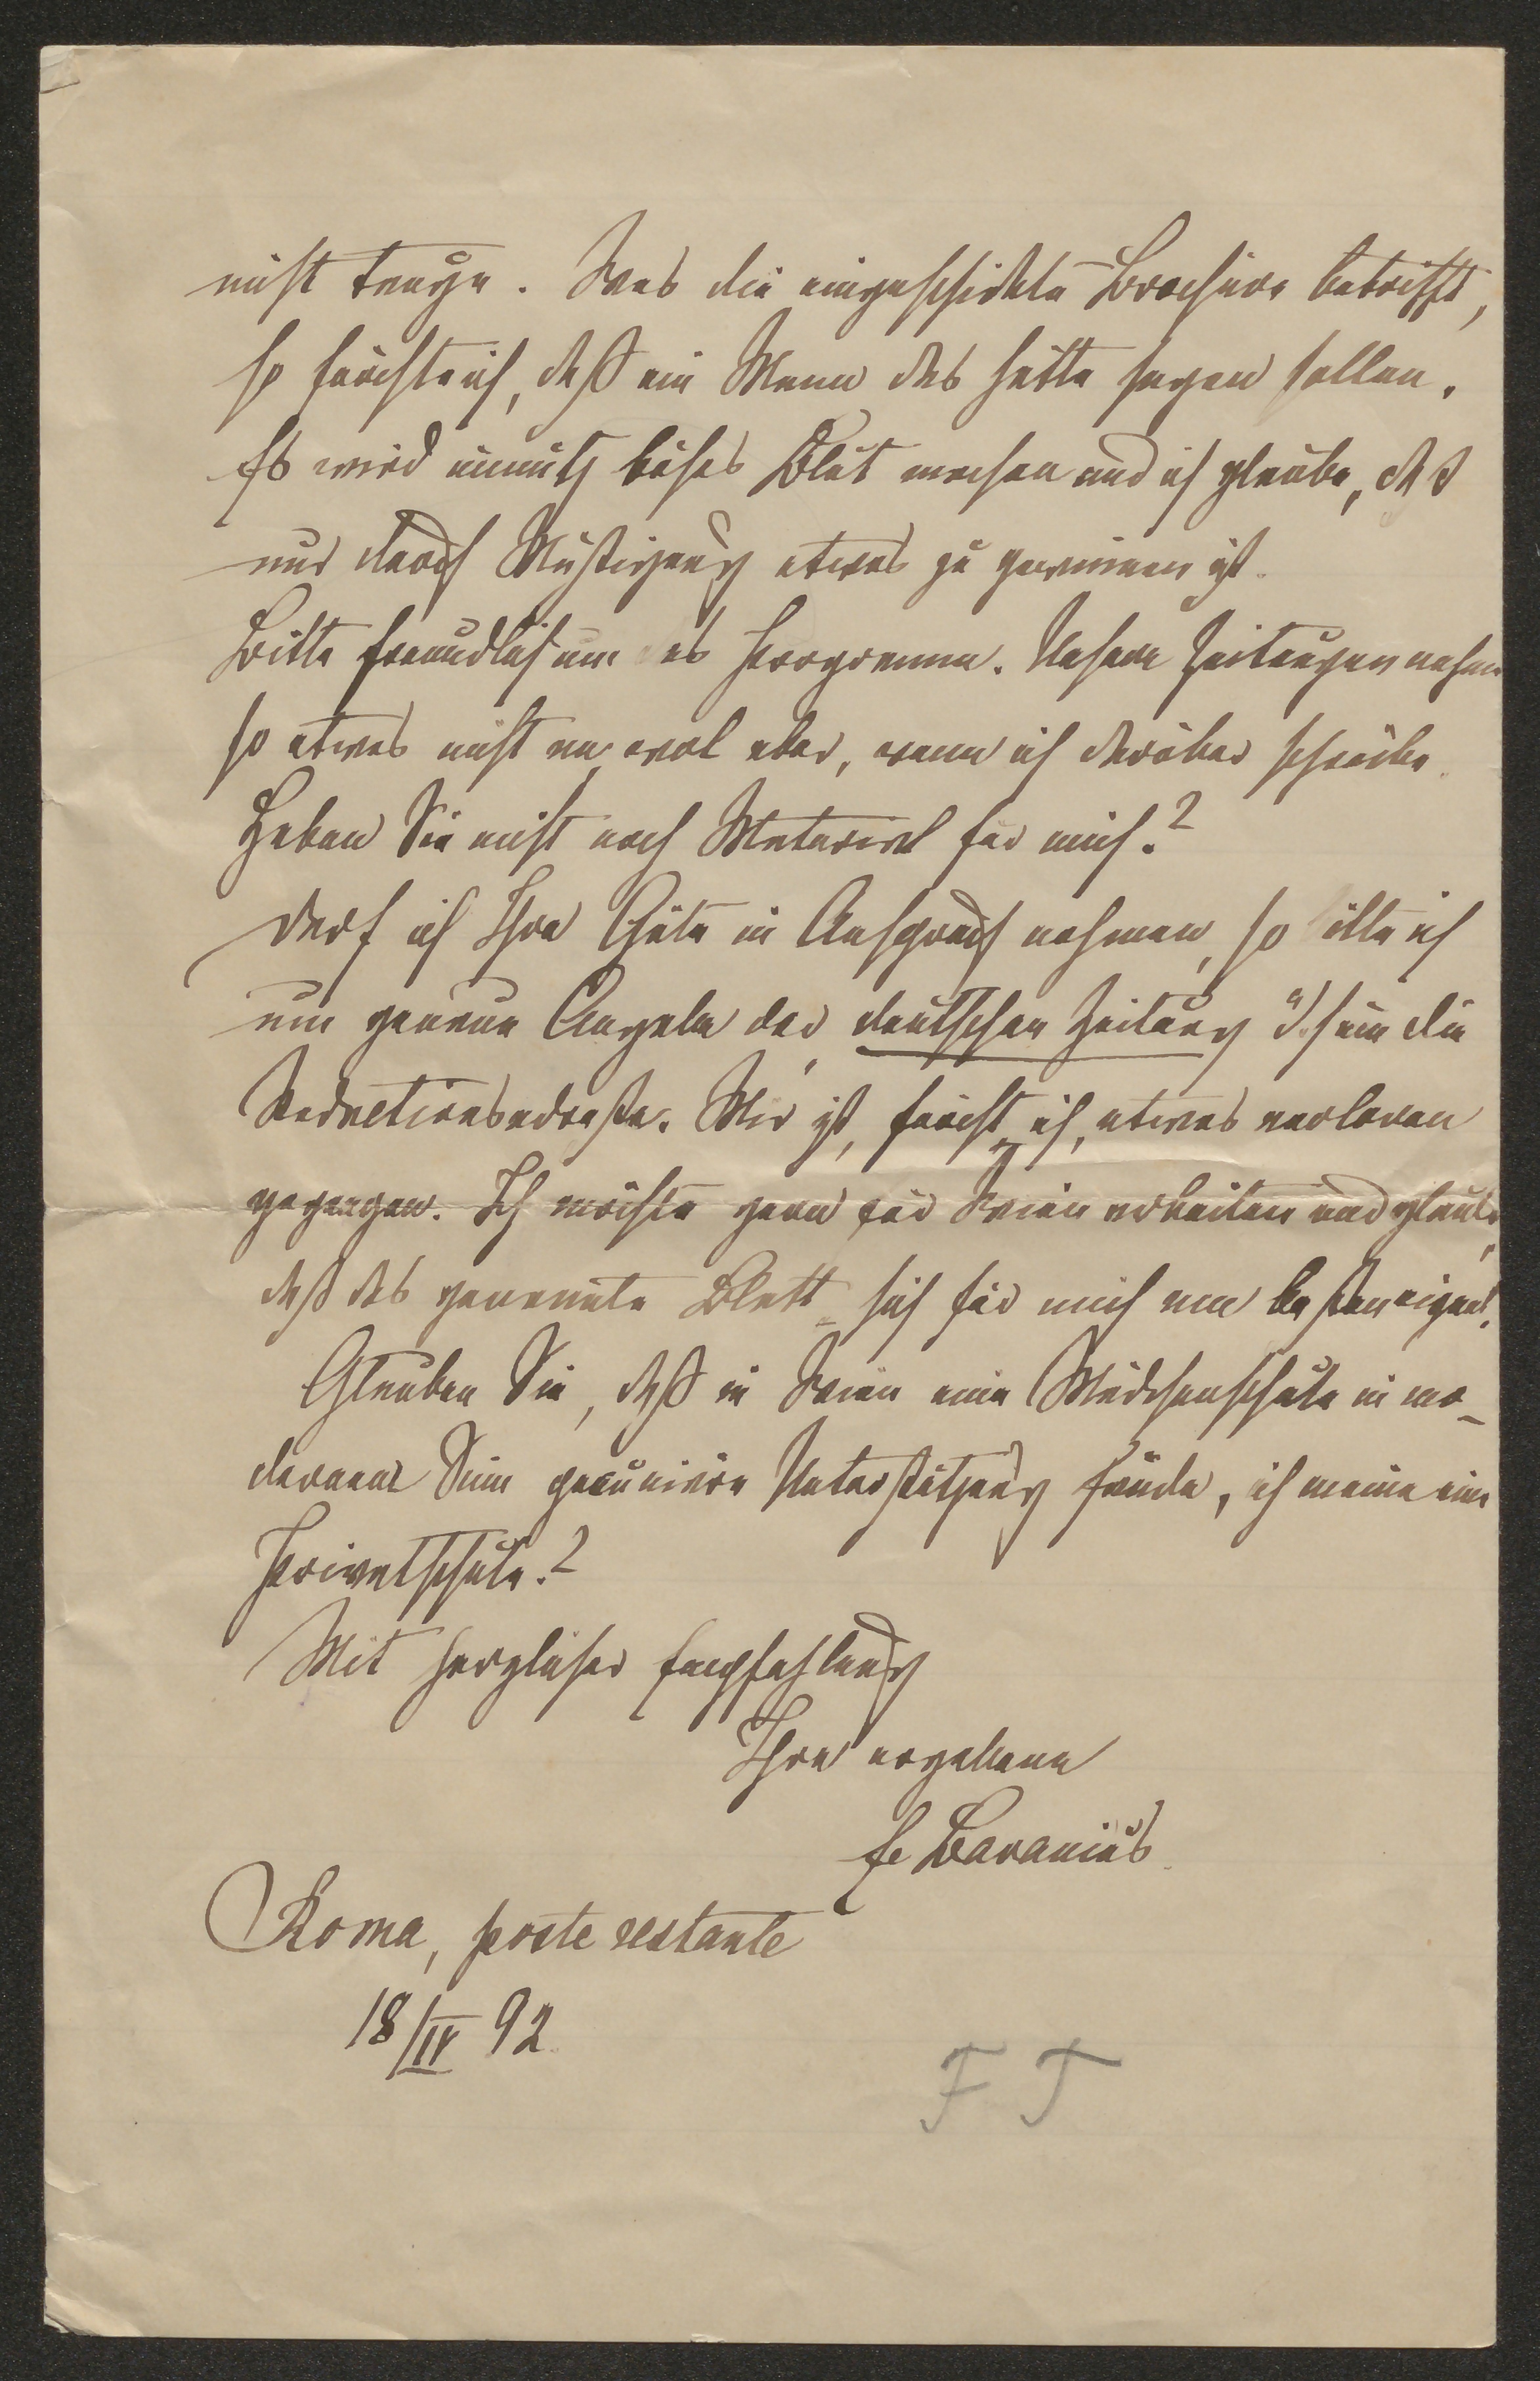 nicht tauge. Was die eingeschickte Brochüre betrifft,
so fürchte ich, daß ein Mann das hätte sagen sollen.
Es wird unnütz böses Blut machen und ich glaube, daß
nur durch Mäßigung etwas zu gewinnen ist.
Bitte freundlich um das Programm. Unsere Zeitungen nehmen
so etwas nicht an, wol aber, wenn ich darüber schreibe.
Haben Sie nicht noch Material für mich?
Darf ich Ihre Güte in Anspruch nehmen, so bitte ich
um genaue Angabe der „deutschen Zeitung" d. h. um die
Redactionsadresse. Mir ist, fürcht' ich, etwas verloren
gegangen. Ich möchte gern für Wien arbeiten und glaube,
daß das genannte Blatt sich für mich am besten eignet.
Glauben Sie, daß in Wien eine Mädchenschule in mo-
dernem Sinn pecuniäre Unterstützung fände, ich meine eine
Privatschule?
Mit herzlicher Empfehlung
Ihre ergebene
E Baranius.
Roma, poste restante
18/IV 92.
F T